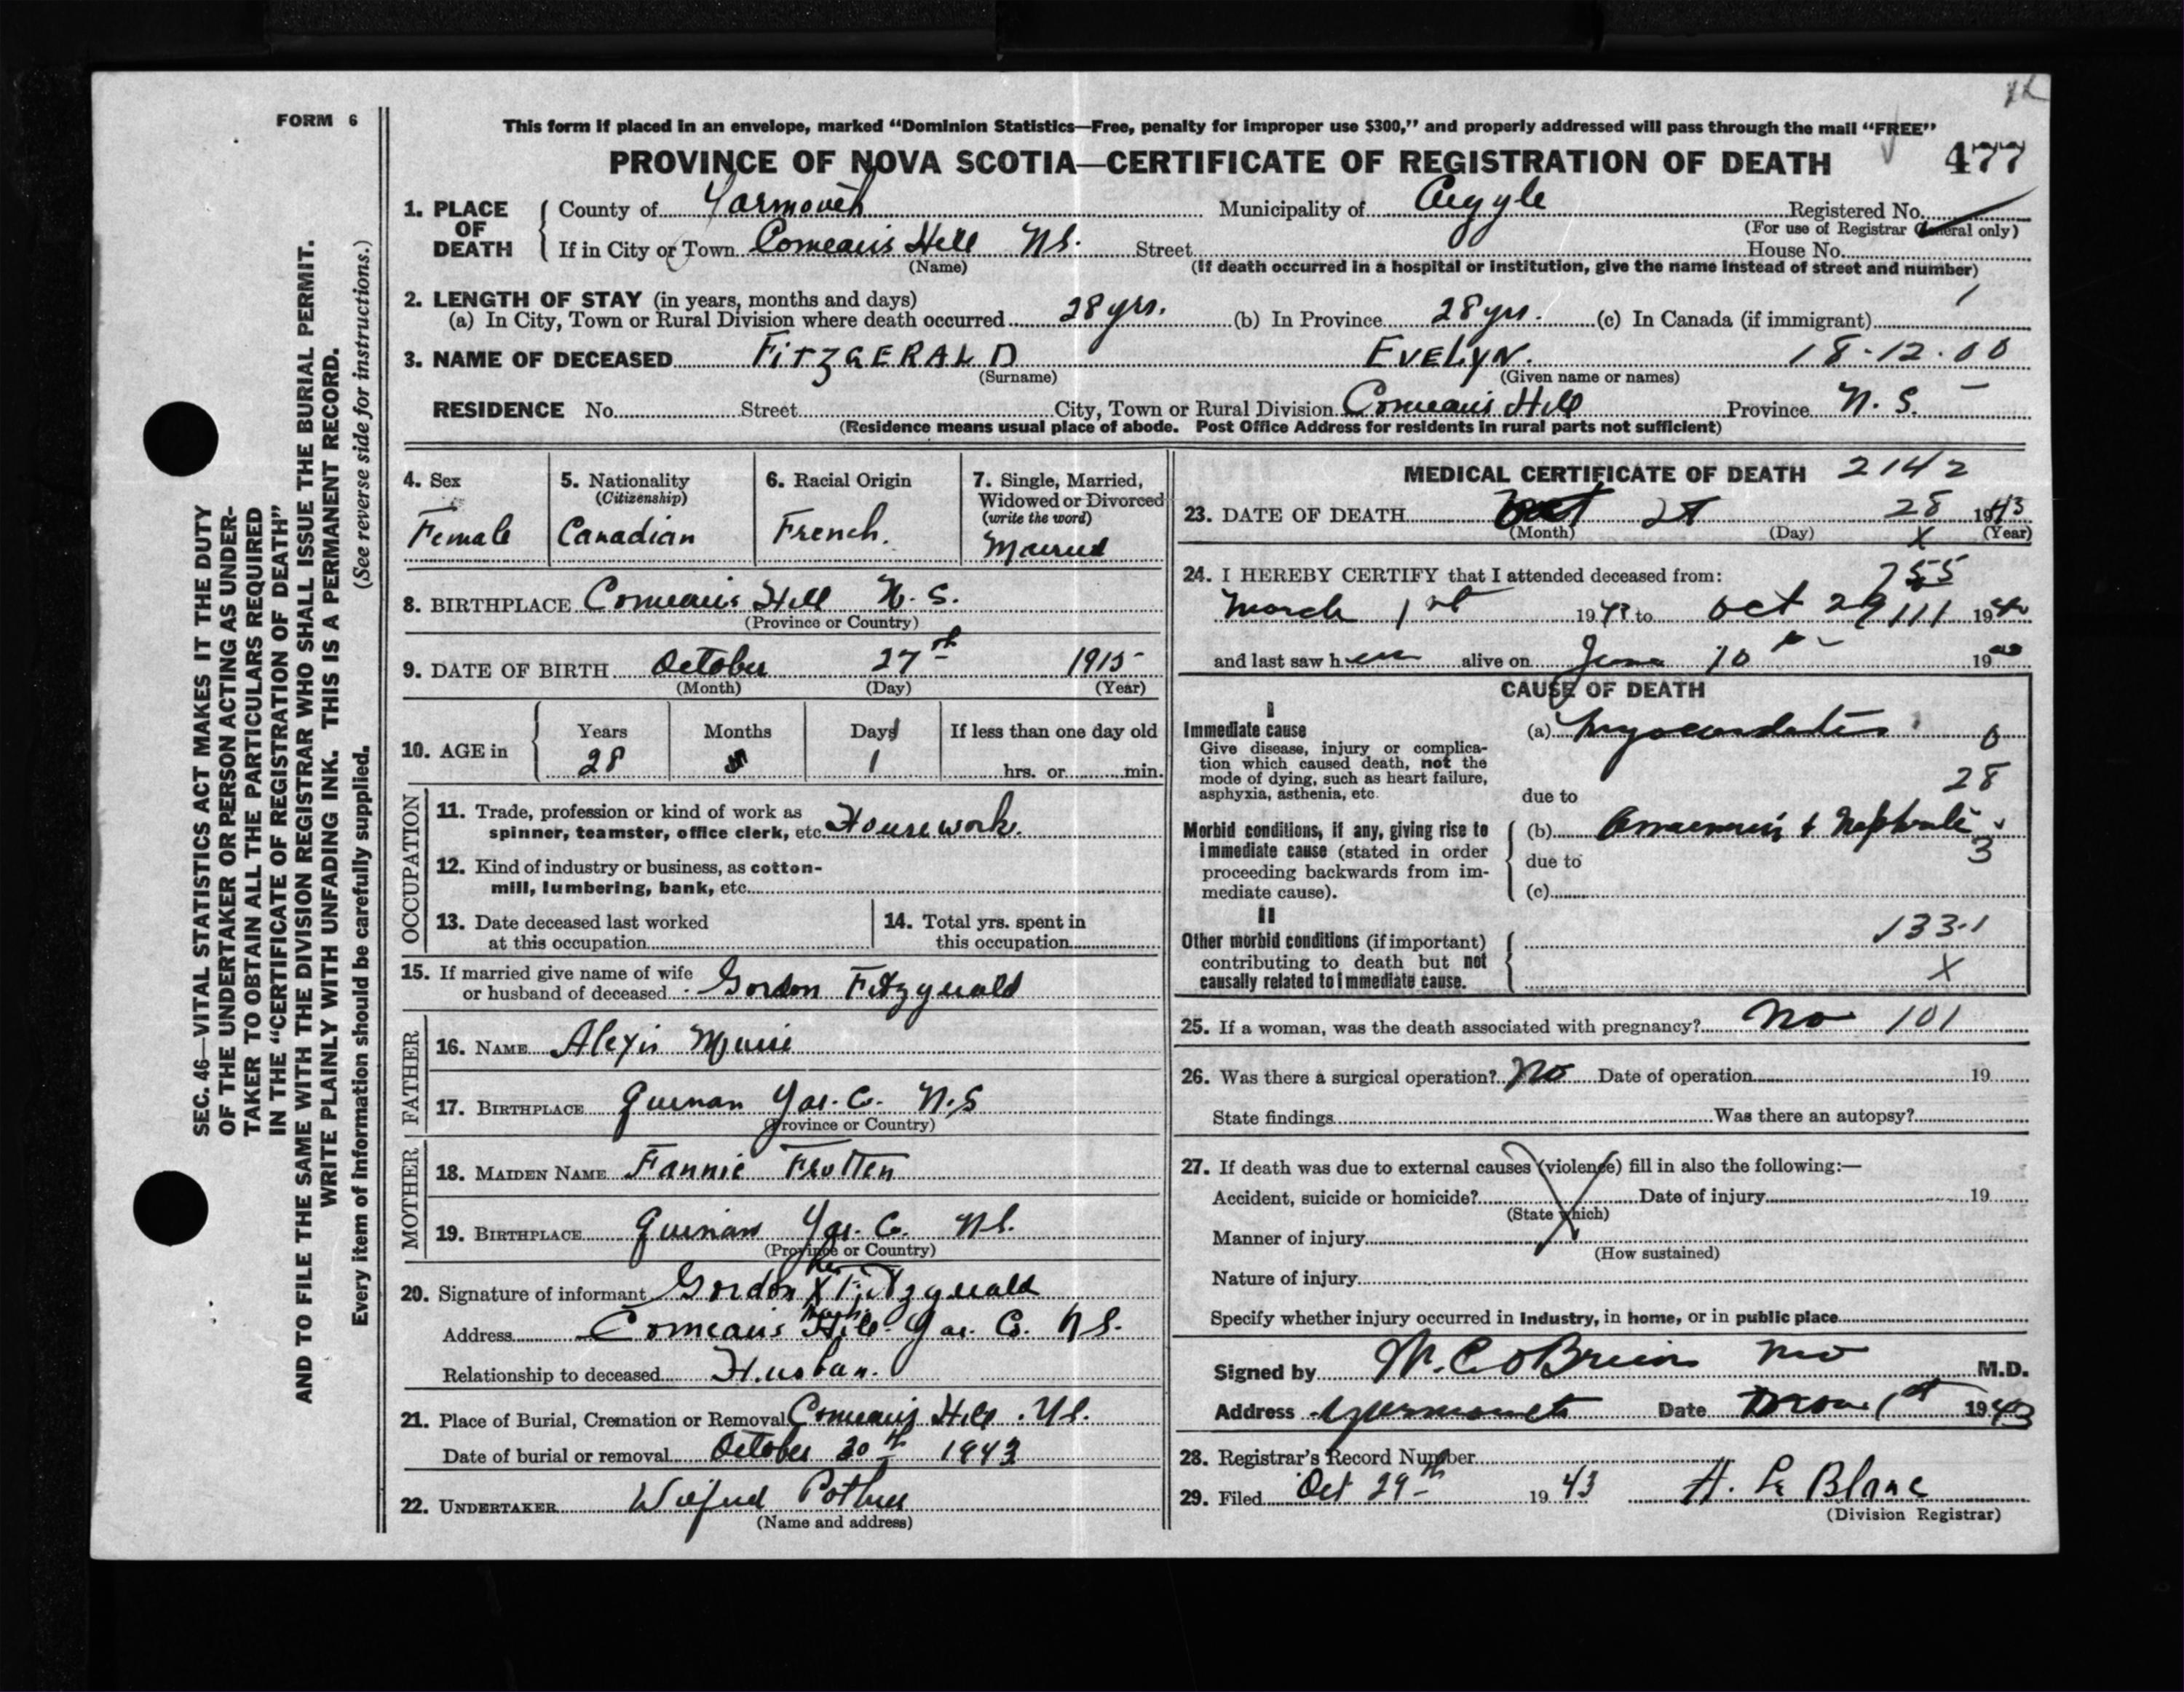 FORM 6
This form if placed in an envelope, marked “Dominion Statistics—Free, penalty for improper use $300,” and properly addressed will pass through the mail “FREE”
PROVINCE OF NOVA SCOTIA—CERTIFICATE OF REGISTRATION OF DEATH
477
1. PLACE OF DEATH
County of Yarmouth Municipality of Argyle Registered No.
(For use of Registrar General only)
If in City or Town Comeau's Hill N.S. Street House No.
(Name) (If death occurred in a hospital or institution, give the name instead of street and number)
2. LENGTH OF STAY (in years, months and days)
(a) In City, Town or Rural Division where death occurred 28 yrs. (b) In Province 28 yrs. (c) In Canada (if immigrant)
3. NAME OF DECEASED FITZGERALD EVELYN. 18-12-00
(Surname) (Given name or names)
RESIDENCE No. Street City, Town or Rural Division Comeau's Hill Province N. S.
(Residence means usual place of abode. Post Office Address for residents in rural parts not sufficient)
4. Sex
Female
5. Nationality
(Citizenship)
Canadian
6. Racial Origin
French.
7. Single, Married,
Widowed or Divorced
(write the word)
Married
8. BIRTHPLACE Comeau's Hill N. S.
(Province or Country)
9. DATE OF BIRTH October 27th 1915
(Month) (Day) (Year)
10. AGE in
Years Months Days If less than one day old
28 1 hrs. or min.
OCCUPATION
11. Trade, profession or kind of work as
spinner, teamster, office clerk, etc. Housework.
12. Kind of industry or business, as cotton-
mill, lumbering, bank, etc.
13. Date deceased last worked
at this occupation
14. Total yrs. spent in
this occupation
15. If married give name of wife
or husband of deceased Gordon Fitzgerald
FATHER
16. NAME Alexis
17. BIRTHPLACE Quinan Yar. Co. N.S
(Province or Country)
MOTHER
18. MAIDEN NAME Fannie Frotten
19. BIRTHPLACE Quinan Yar. Co. N.S.
(Province or Country)
20. Signature of informant Gordon X Fitzgerald
Address Comeau's Hill. Yar. Co. N.S.
Relationship to deceased Husban.
21. Place of Burial, Cremation or Removal Comeau's Hill. N.S.
Date of burial or removal October 30th 1943
22. UNDERTAKER Wilfred Pothier
(Name and address)
MEDICAL CERTIFICATE OF DEATH 2142
23. DATE OF DEATH Oct 28 1943
(Month) (Day) (Year)
X
24. I HEREBY CERTIFY that I attended deceased from:
755
March 1st 19 to Oct 29 111 19
and last saw her alive on June 10th 19
CAUSE OF DEATH
I
Immediate cause
Give disease, injury or complica-
tion which caused death, not the
mode of dying, such as heart failure,
asphyxia, asthenia, etc.
(a) Myocarditis 0
28
due to
Morbid conditions, if any, giving rise to
immediate cause (stated in order
proceeding backwards from im-
mediate cause).
(b) & Nephritis
3
due to
(c)
II
Other morbid conditions (if important)
contributing to death but not
causally related to immediate cause.
133.1
X
25. If a woman, was the death associated with pregnancy? No 101
26. Was there a surgical operation? No Date of operation 19
State findings Was there an autopsy?
27. If death was due to external causes (violence) fill in also the following:—
Accident, suicide or homicide? Date of injury 19
(State which)
Manner of injury
(How sustained)
Nature of injury
Specify whether injury occurred in industry, in home, or in public place
Signed by M. C. O'Brien MD M.D.
Address Yarmouth Date Nov 1st 1943
28. Registrar's Record Number
29. Filed Oct 29th 1943 A. Le Blanc
(Division Registrar)
SEC. 46—VITAL STATISTICS ACT MAKES IT THE DUTY
OF THE UNDERTAKER OR PERSON ACTING AS UNDER-
TAKER TO OBTAIN ALL THE PARTICULARS REQUIRED
IN THE “CERTIFICATE OF REGISTRATION OF DEATH”
AND TO FILE THE SAME WITH THE DIVISION REGISTRAR WHO SHALL ISSUE THE BURIAL PERMIT.
WRITE PLAINLY WITH UNFADING INK. THIS IS A PERMANENT RECORD.
Every item of information should be carefully supplied. (See reverse side for instructions.)